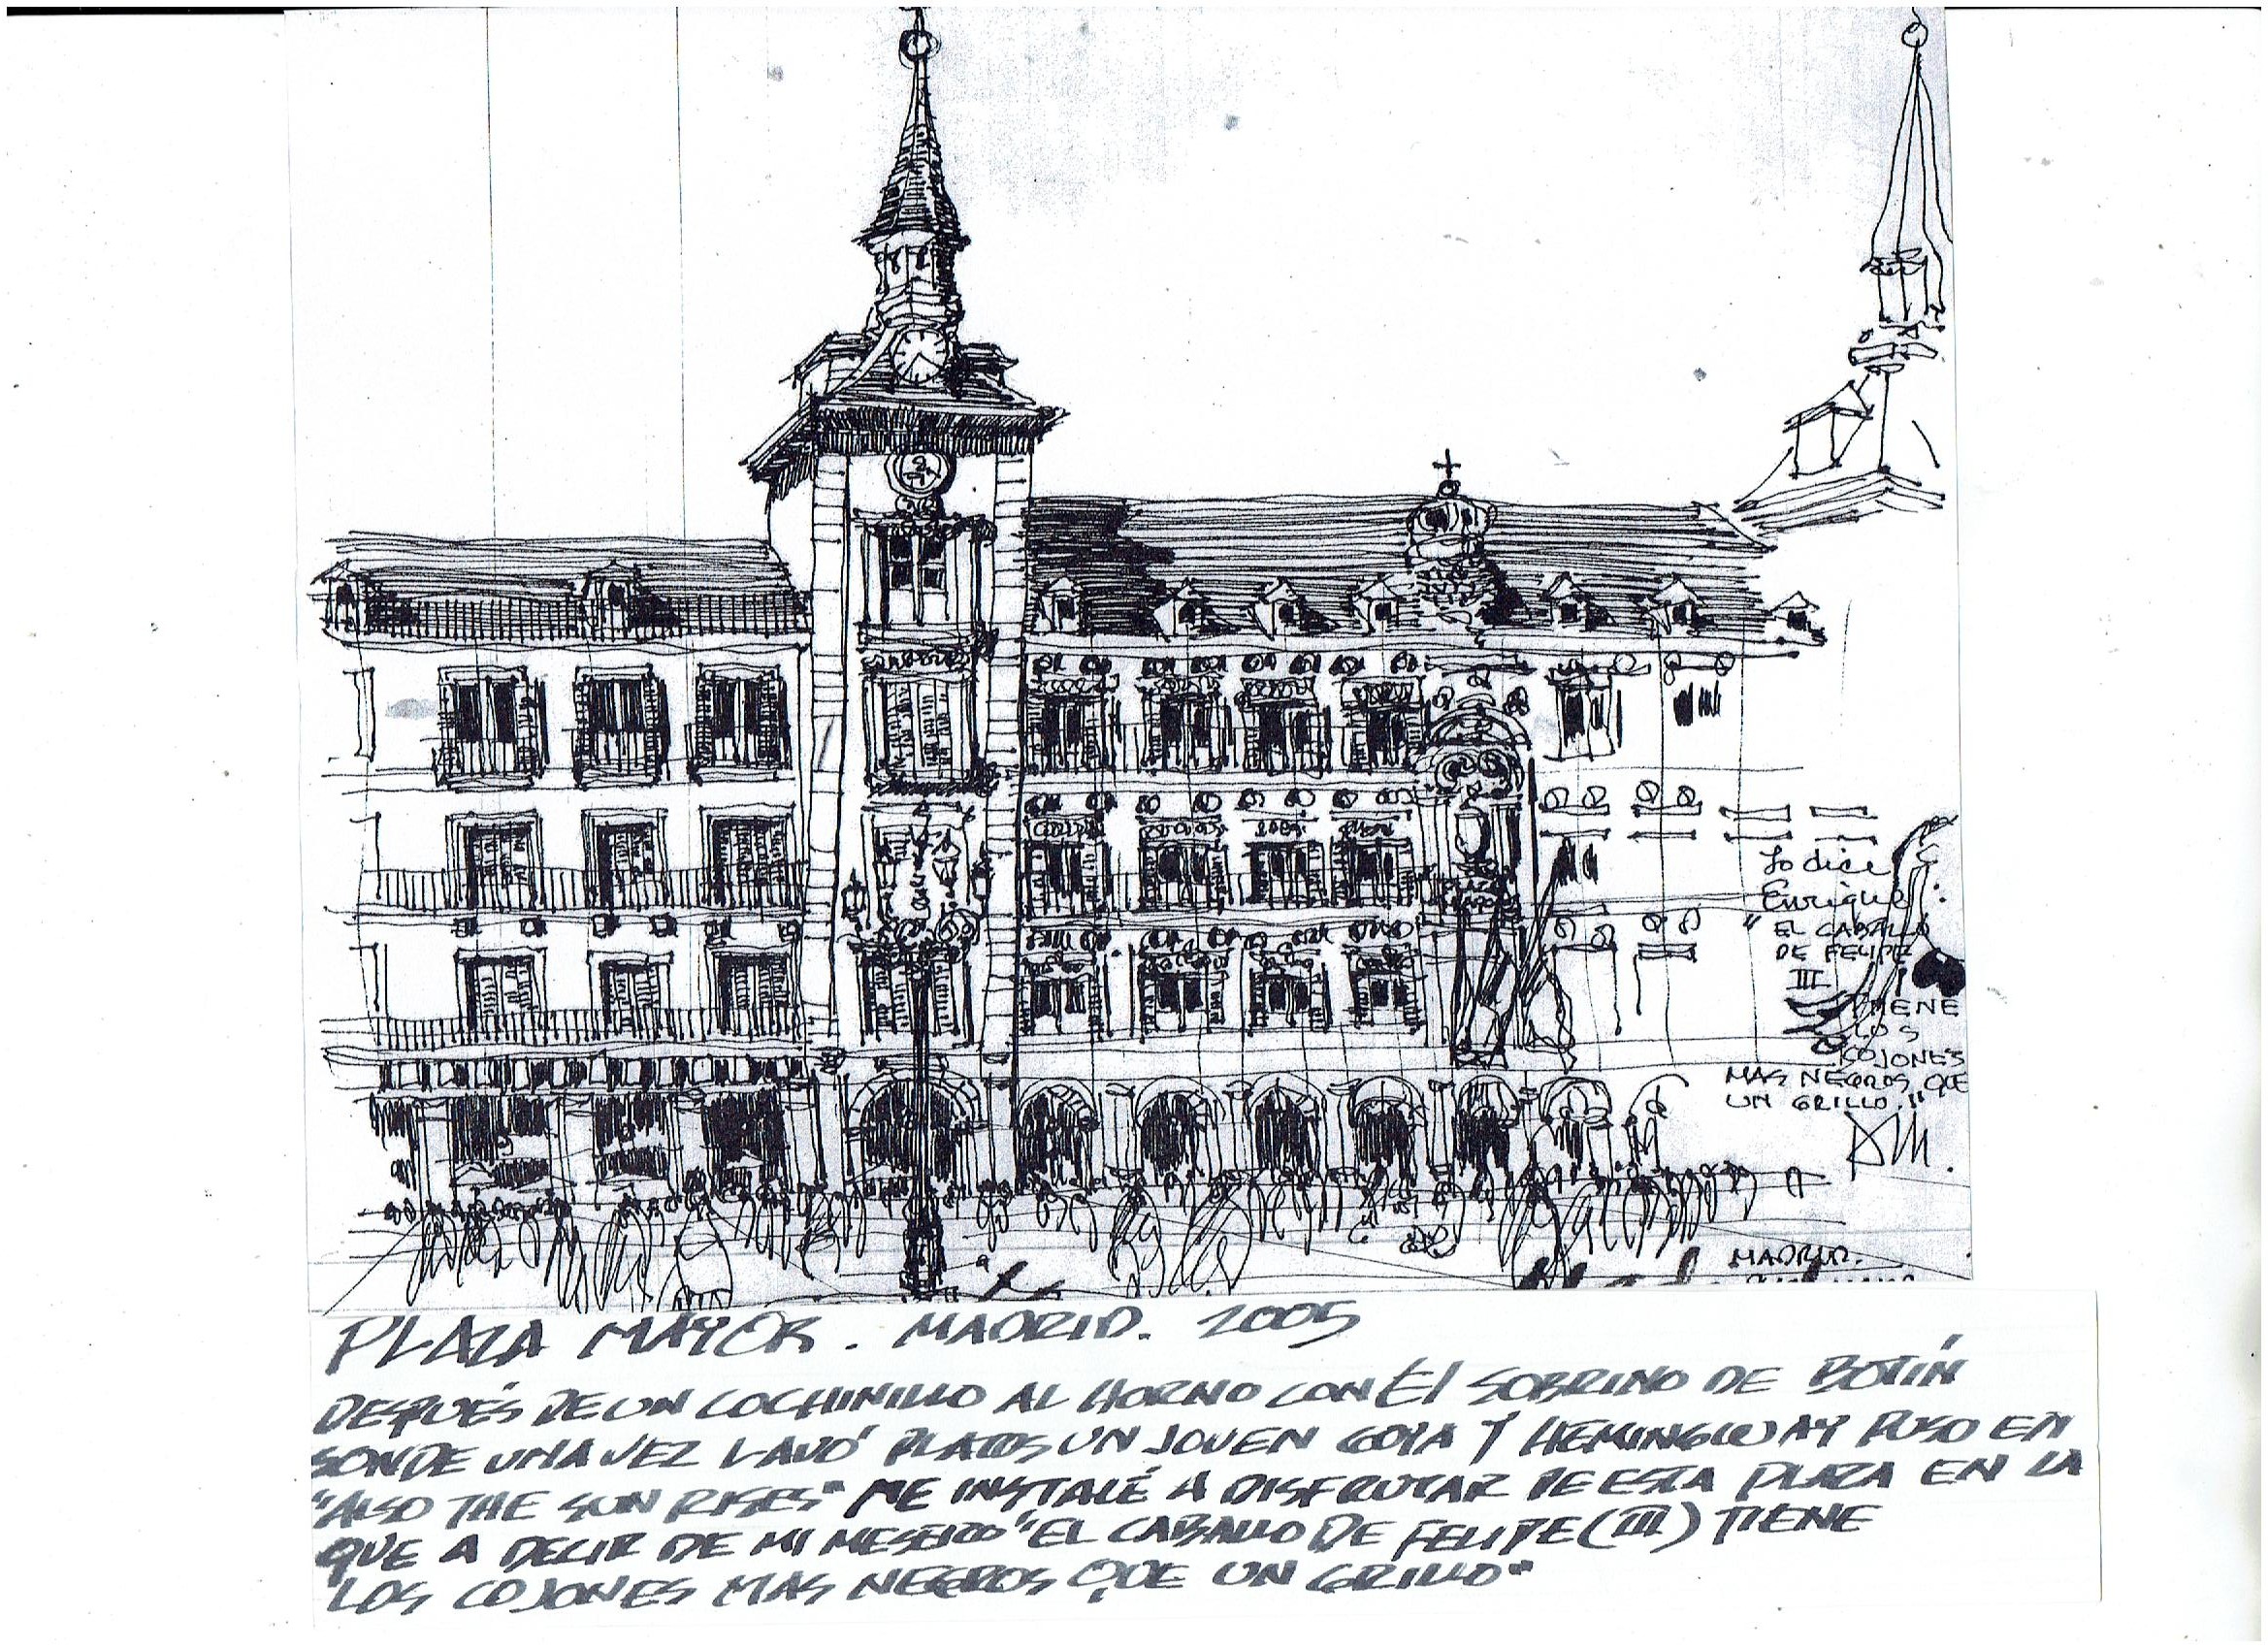 Lo dice
Enrique:
"EL CABALLO
DE FELIPE
III
TIENE
LOS
COJONES
MAS NEGROS QUE
UN GRILLO."
MADRID.
PLAZA MAYOR. MADRID. 2005
DESPUÉS DE UN COCHINILLO AL HORNO CON El SOBRINO DE BOTÍN
DONDE UNA VEZ LAVÓ PLATOS UN JOVEN GOYA Y HEMINGWAY PUSO EN
"ALSO THE SUN RISES" ME INSTALÉ A DISFRUTAR DE ESTA PLAZA EN LA
QUE A DECIR DE MI MESERO "EL CABALLO DE FELIPE (III) TIENE
LOS COJONES MAS NEGROS QUE UN GRILLO"